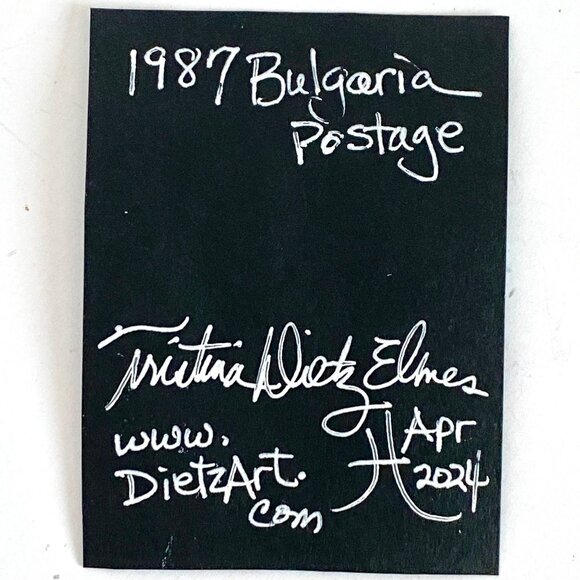 1987 Bulgaria
Postage
Tristina Dietz Elmes
www.
DietzArt.
com
Apr
2024